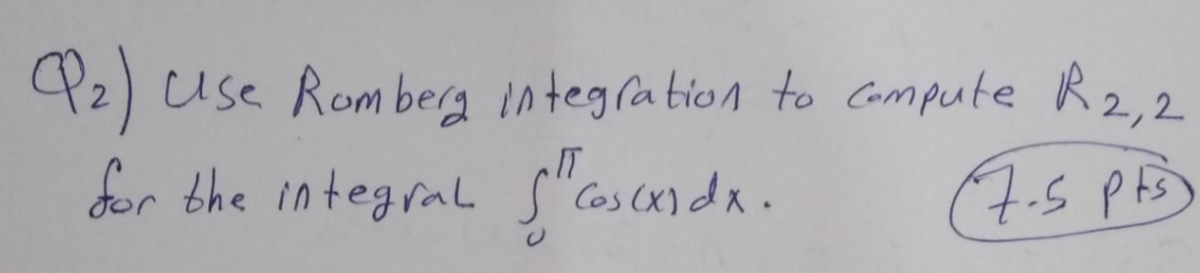 Q2) Use Romberg integration to compute R2,2
for the integral ∫0^π cos(x) dx. 7.5 pts